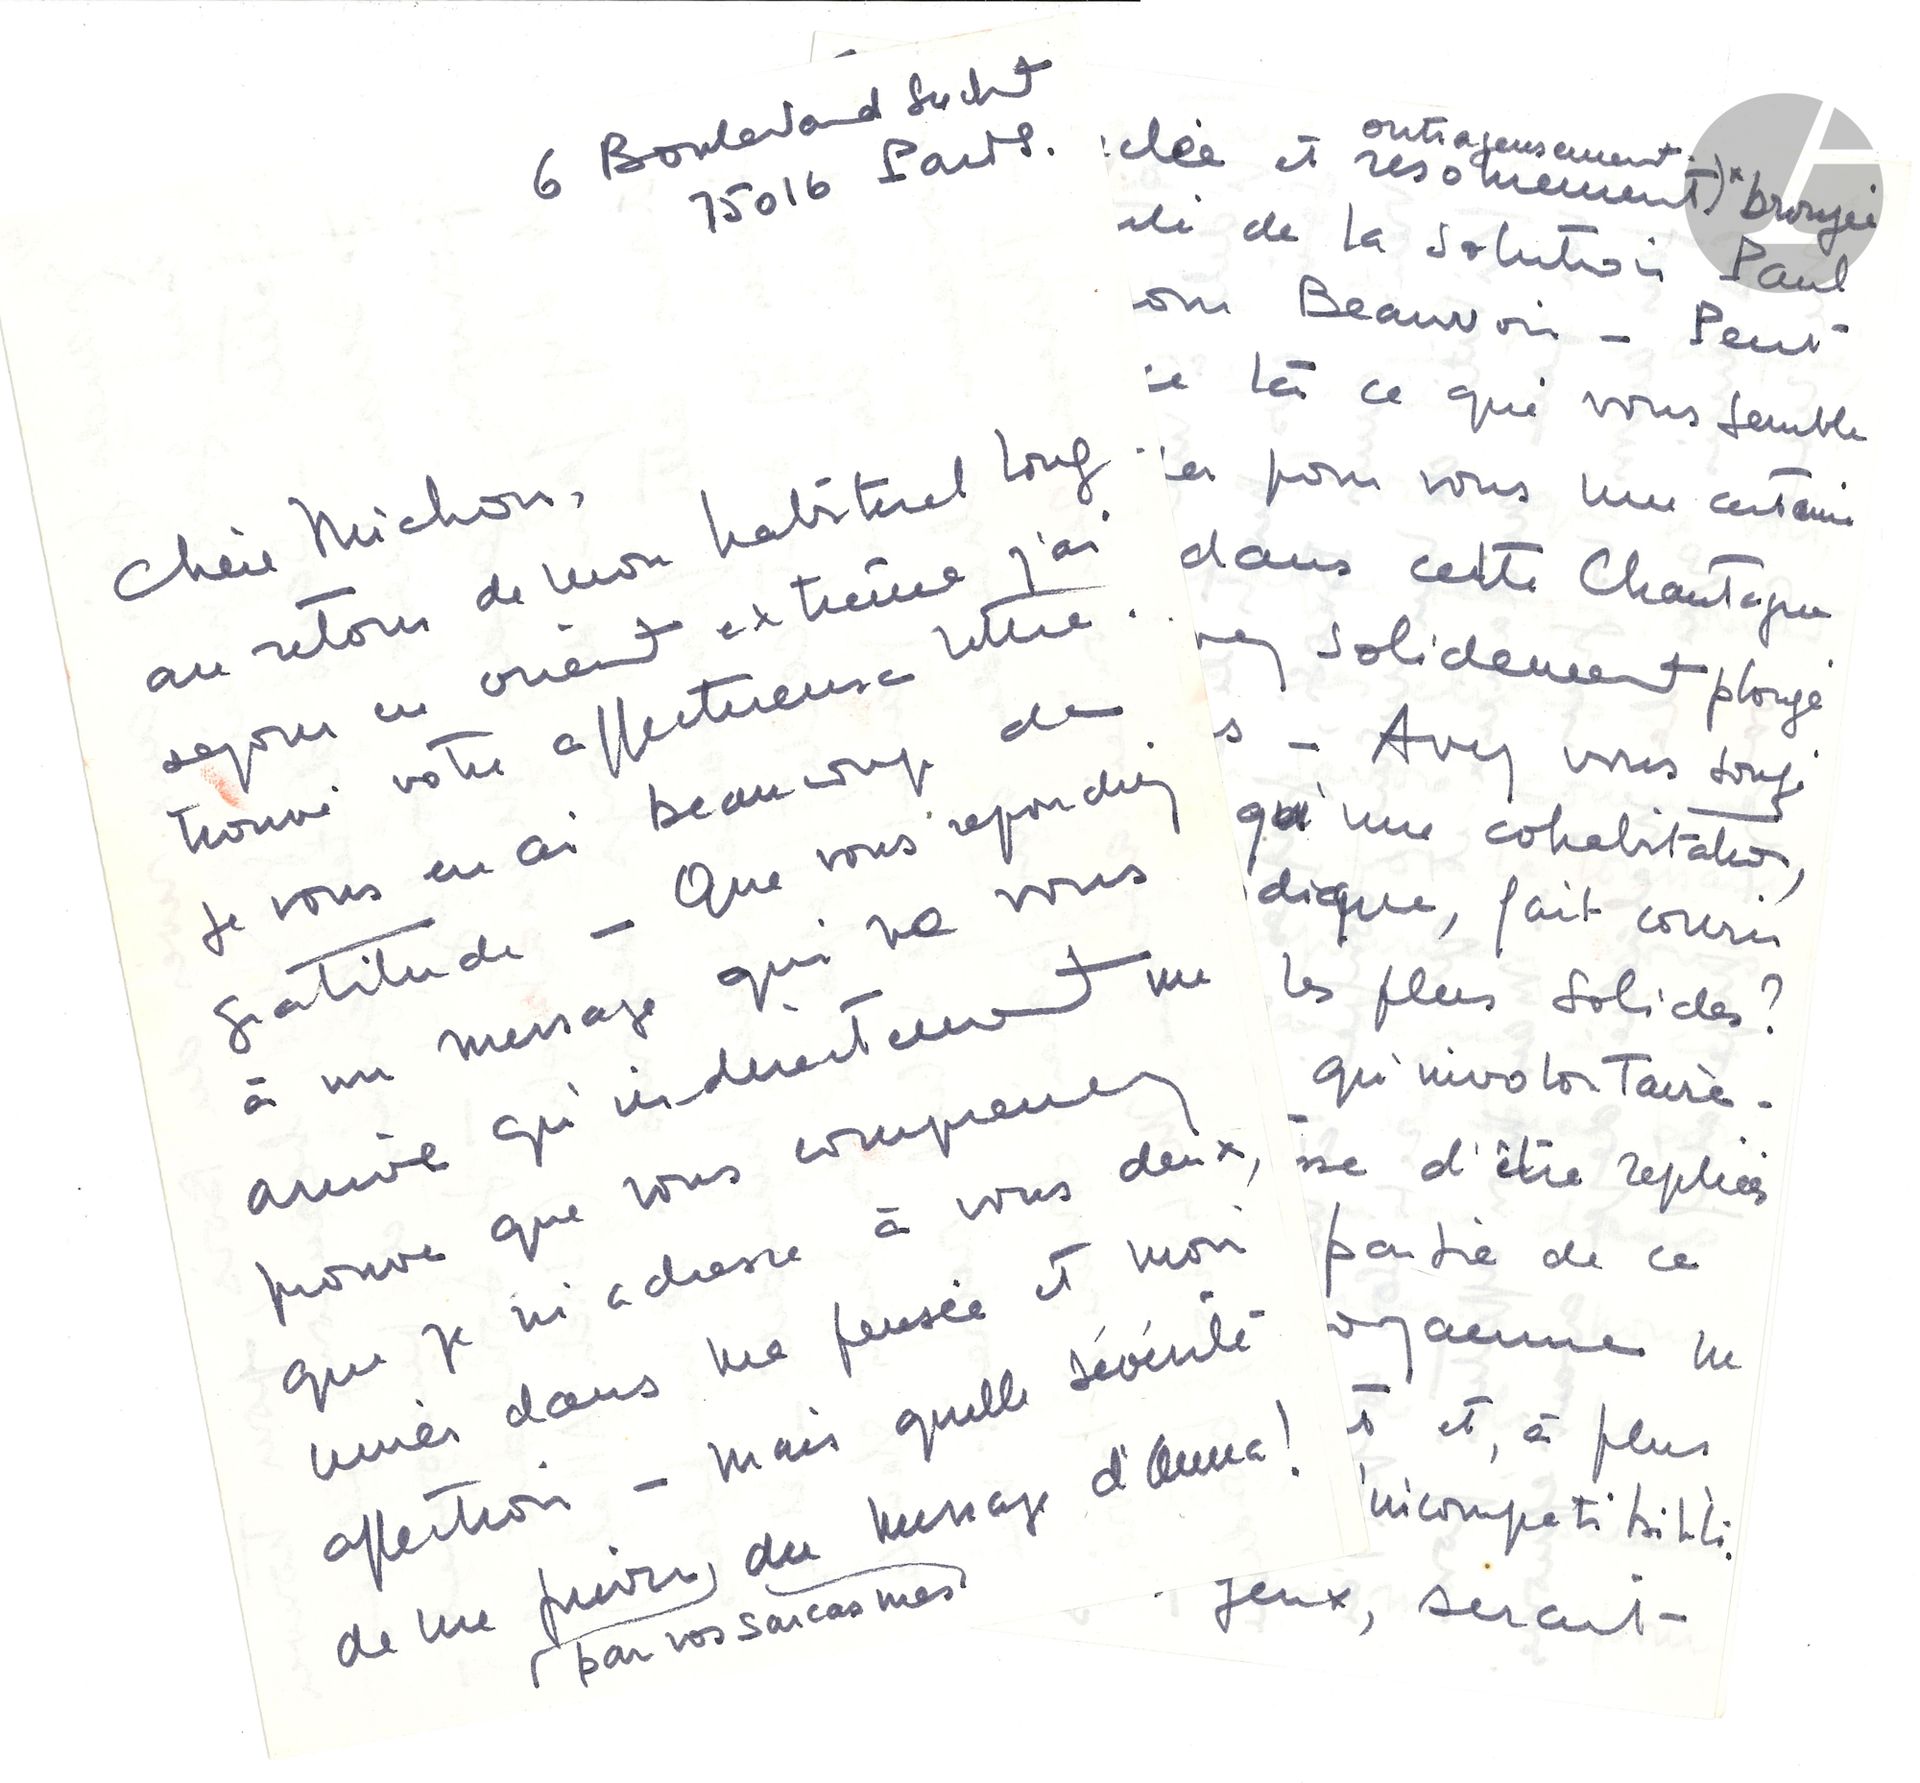 6 Boulevard Suchet
75016 Paris.
Chère Michon,
au retour de mon habituel long
séjour en orient extrême j'ai
trouvé votre affectueuse lettre.
Je vous en ai beaucoup de
gratitude – Que vous répondiez
à un message qui ne vous
arrive qu'indirectement me
prouve que vous comprenez
que je m'adresse à vous deux,
unies dans ma pensée et mon
affection – mais quelle sévérité
de me priver, du message d'Anna!
( par vos sarcasmes
outrageusement
et résolument)x brouyée
de la solution Paul
Beauvoir – Peut-
là ce qui vous semble
pour vous une certaine
dans cette Chautagne
solidement plongé
– Avez vous songé
qu'une cohabitation,
dique, fait courir
les plus solides?
qu'involontaire-
d'être repliées
partie de ce
m
et, à plus
incompatibilité.
yeux, serait-